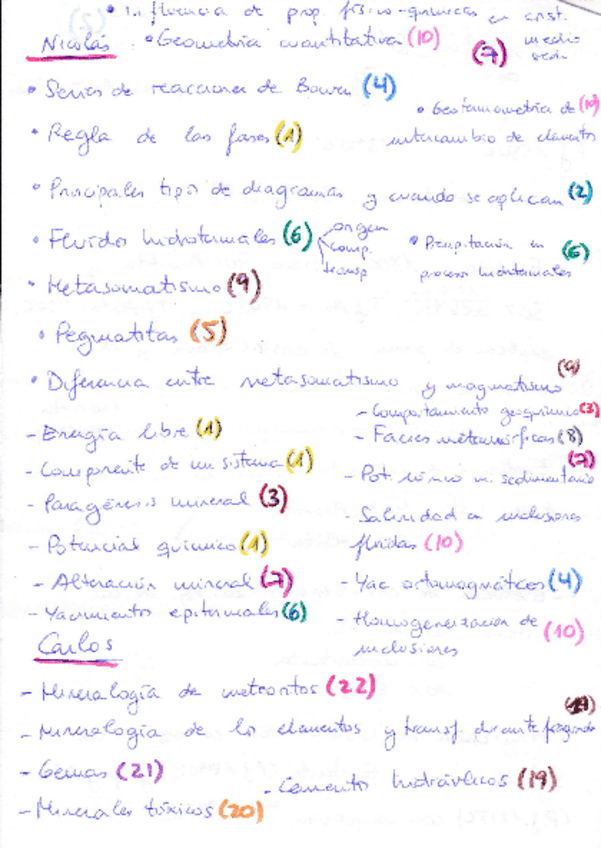 • Influencia de prop. físico-químicas en crist.
Nicolás • Geometría cuantitativa (10) (7) medio sedi.
• Series de reacciones de Bowen (4)
• Geotermometría de (10)
• Regla de las fases (1) intercambio de elementos
• Principales tipos de diagramas y cuando se aplican (2)
• Fluidos hidrotermales (6) origen comp. transp
• Precipitación en (6)
procesos hidrotermales
• Metasomatismo (9)
• Pegmatitas (5)
• Diferencia entre metasomatismo y magmatismo (9)
- Comportamiento geoquímico (3)
- Energía libre (1) - Facies metamórficas (8)
- Componente de un sistema (1) - Pot. iónico m. sedimentario (7)
- Paragénesis mineral (3) - Salinidad en inclusiones
- Potencial químico (1) fluidas (10)
- Alteración mineral (7) - Yac ortomagmáticos (4)
- Yacimientos epitermales (6) - Homogeneización de (10)
Carlos inclusiones
- Mineralogía de meteoritos (22)
- Mineralogía de los elementos y transf. durante fraguado
- Gemas (21) - Cementos hidráulicos (19)
- Minerales tóxicos (20)